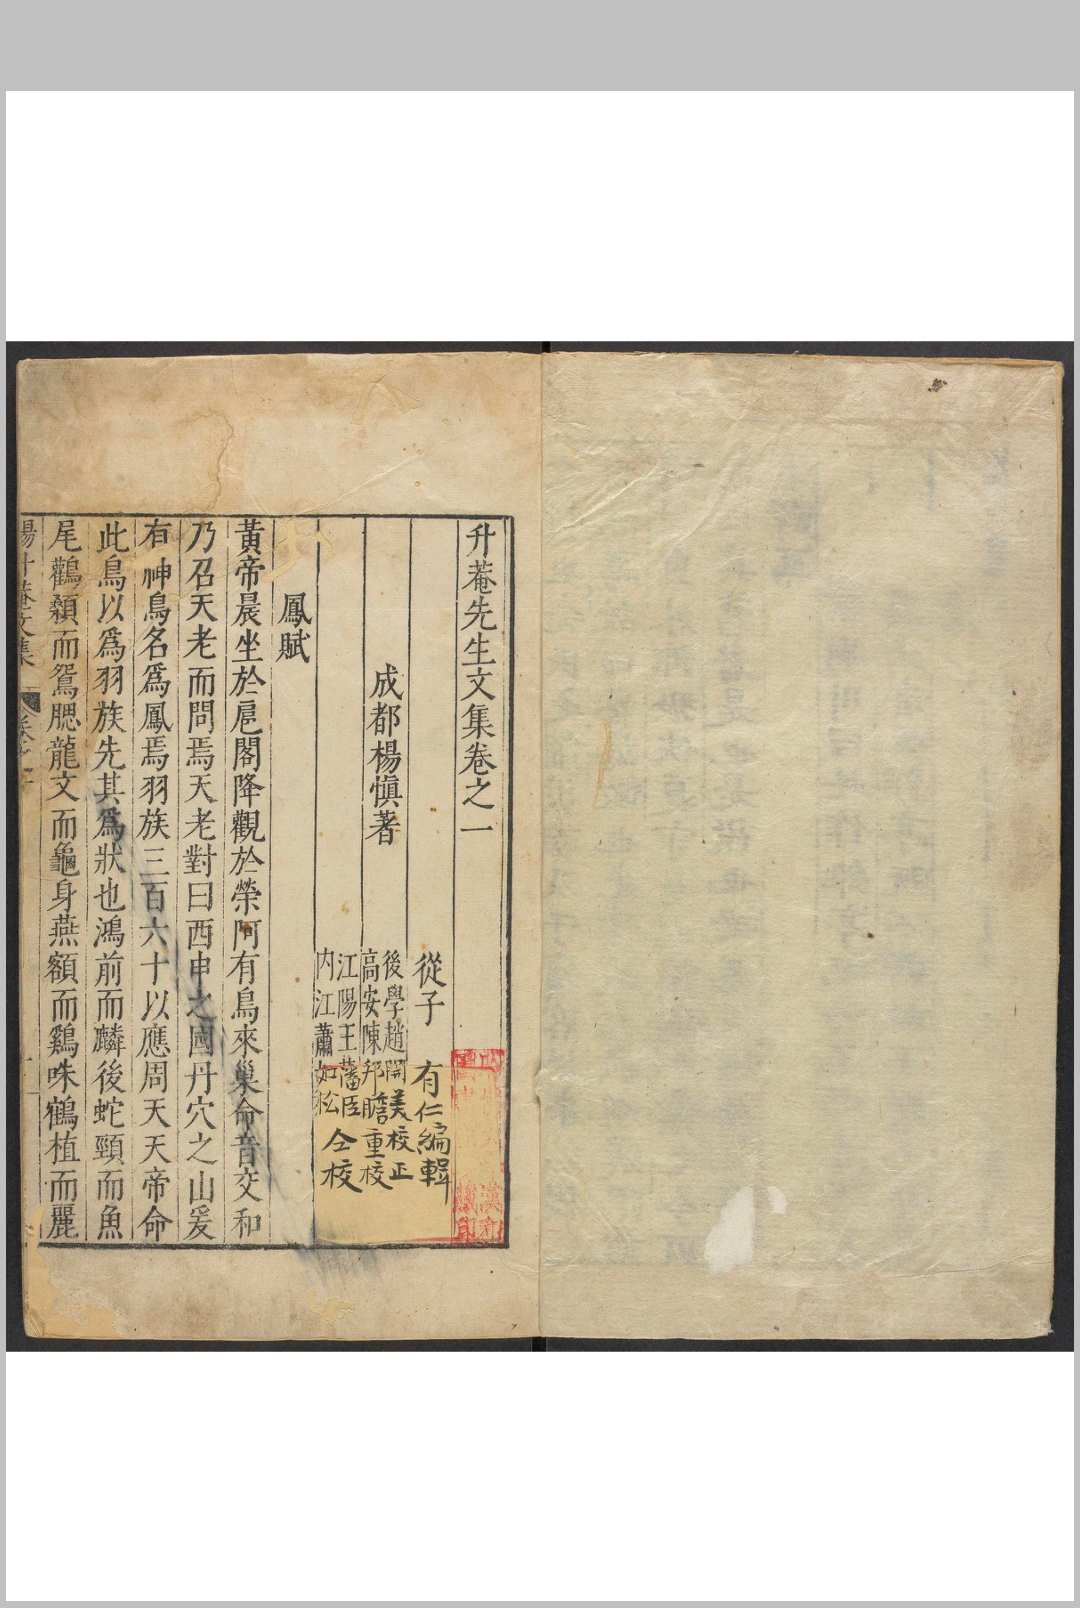 升菴先生文集卷之一
從子 有仁編輯
成都楊慎著
後學趙開美校正
高安陳邦瞻重校
江陽王藩臣
内江蕭如松仝校
鳳賦
黃帝晨坐於扈閣降觀於榮阿有鳥來巢命音交和
乃召天老而問焉天老對曰西申之國丹穴之山爰
有神鳥名爲鳳焉羽族三百六十以應周天天帝命
此鳥以爲羽族先其爲狀也鴻前而麟後蛇頸而魚
尾鸛顙而鴛腮龍文而龜身燕額而鷄咮鶴植而麗
楊升菴文集